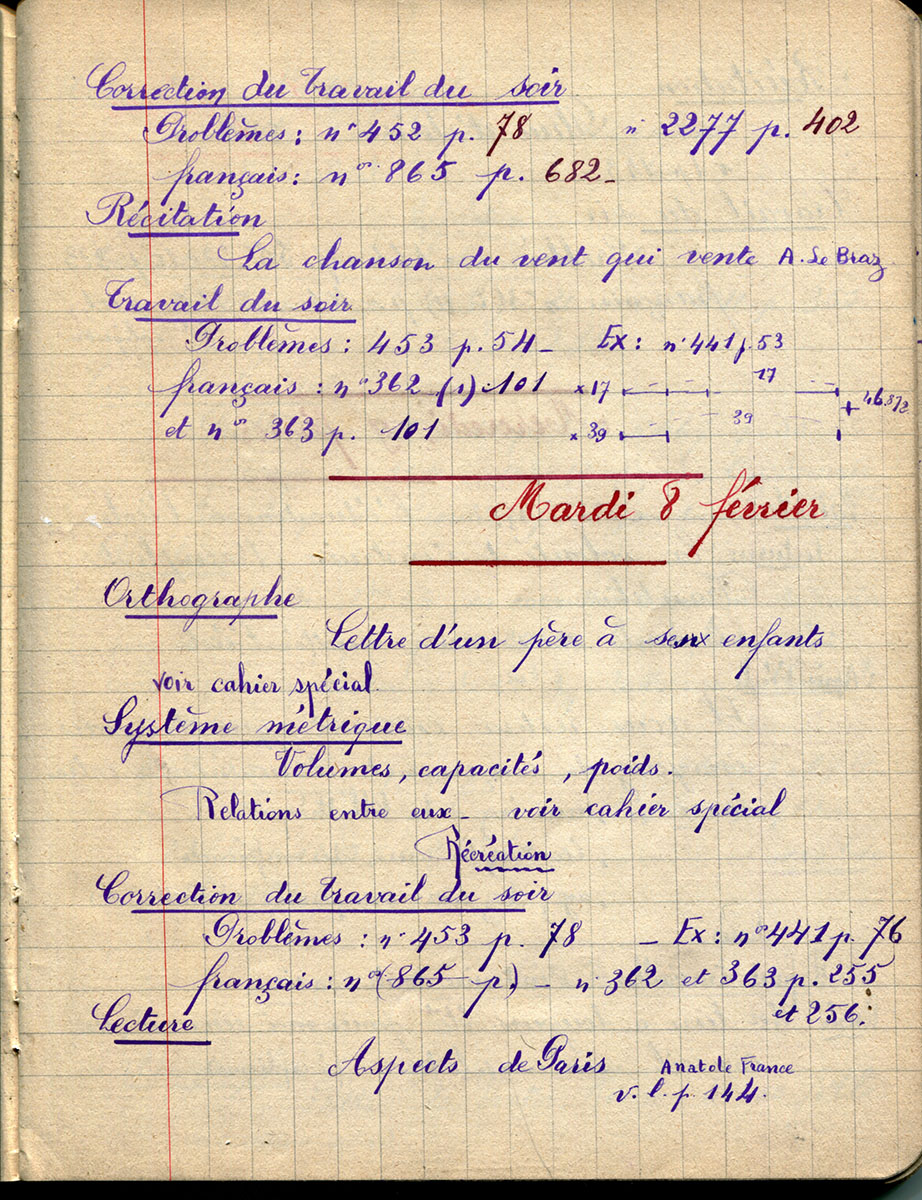 Correction du travail du soir
Problèmes : n° 452 p. 78 n° 2277 p. 402
français : n° 865 p. 682 -
Récitation
La chanson du vent qui vente A. Le Braz
Travail du soir
Problèmes : 453 p. 54 - Ex : n° 441 p. 53
français : n° 362 (1) 101 × 17 17
et n° 363 p. 101 × 39 39 + 46.872
Mardi 8 février
Orthographe
Lettre d'un père à ses enfants
voir cahier spécial
Système métrique
Volumes, capacités, poids.
Relations entre eux - voir cahier spécial
Récréation
Correction du travail du soir
Problèmes : n° 453 p. 78 - Ex : n° 441 p. 76
français : n° (865 p.) - n° 362 et 363 p. 255
et 256.
Lecture
Aspects de Paris Anatole France
v. l. p. 144.